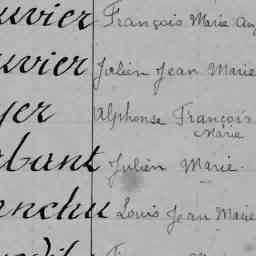 uvier François Marie Aug
uvier Julien Jean Marie
yer Alphonse François
Marie
rbant Julien Marie.
enchu Louis Jean Marie